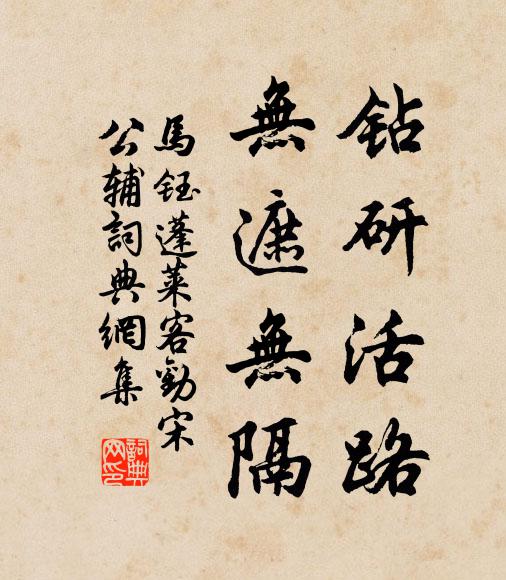 钻研活路
無遮無隔
馬鈺蓬萊客勸宋
公辅詞典網集
詞典网印